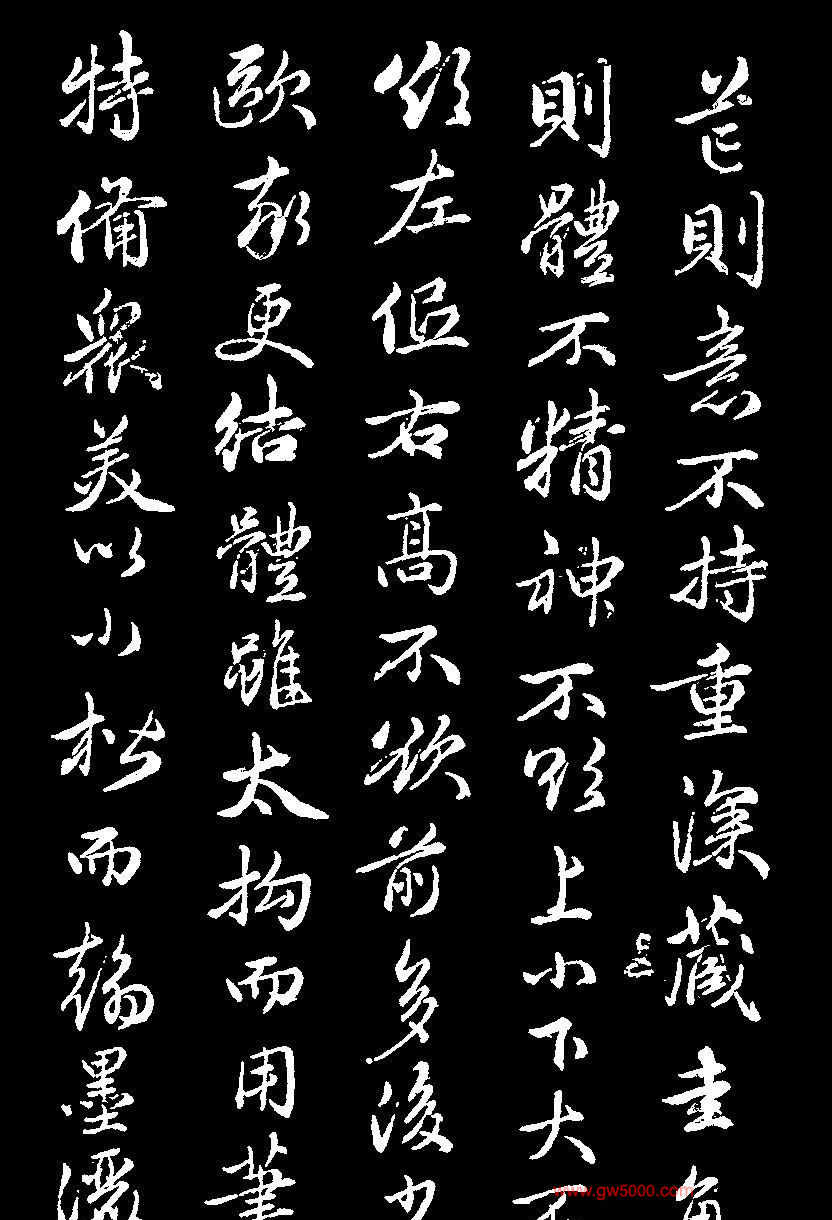 芒則意不持重深藏圭角
則體不精神不欲上小下大不
欲左低右高不欲前多後少
歐率更結體雖太拘而用筆
特備衆美以小楷而翰墨灑
www.gw5000.com